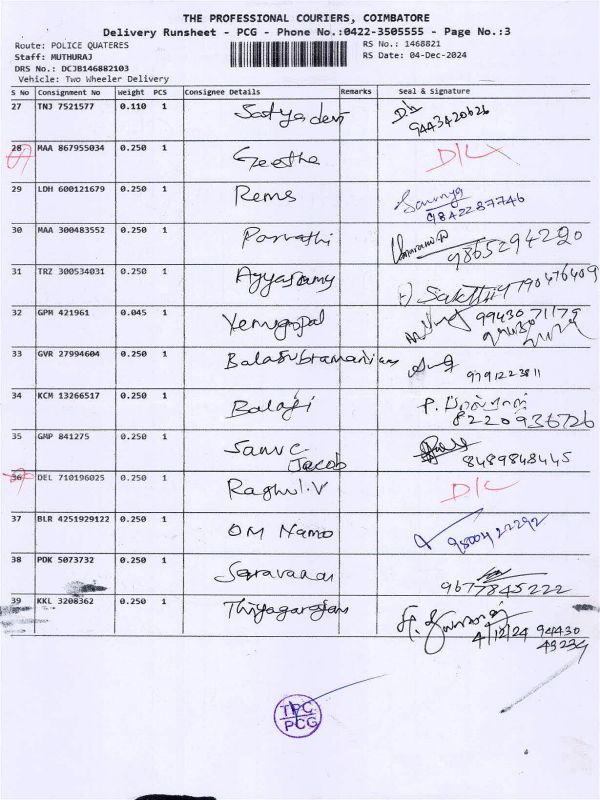 THE PROFESSIONAL COURIERS, COIMBATORE
Delivery Runsheet - PCG - Phone No.:0422-3505555 - Page No.:3
Route: POLICE QUATERES
Staff: MUTHURAJ
DRS No.: DCJB146882103
Vehicle: Two Wheeler Delivery
RS No.: 1468821
RS Date: 04-Dec-2024
S No Consignment No Weight PCS Consignee Details Remarks Seal & Signature
27 TNJ 7521577 0.110 1 Satyadevi 9443420626
28 MAA 867955034 0.250 1 Geetha D/L
29 LDH 600121679 0.250 1 Rems Sowmya 9842287746
30 MAA 300483552 0.250 1 Parvathi 9865294290
31 TRZ 300534031 0.250 1 Ayyasamy 7790476409
32 GPM 421961 0.045 1 Venugopal 9943071179
33 GVR 27994604 0.250 1 Balasubramaniam 9791223811
34 KCM 13266517 0.250 1 Balaji 8220936726
35 GMP 841275 0.250 1 Jacob 8489848445
36 DEL 710196025 0.250 1 Raghul.V D/L
37 BLR 4251929122 0.250 1 OM Namo 9800422292
38 PDK 5073732 0.250 1 Saravanan 9677845222
39 KKL 3208362 0.250 1 Thiyagarajan 4/12/24 94430
43234
TPC
PCG